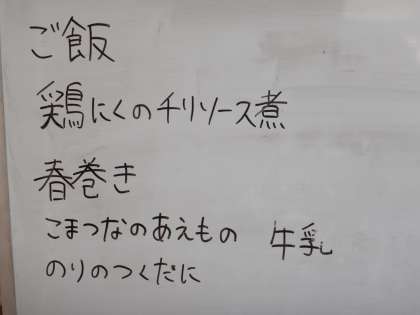 ご飯
鶏にくのチリソース煮
春巻き
こまつなのあえもの 牛乳
のりのつくだに